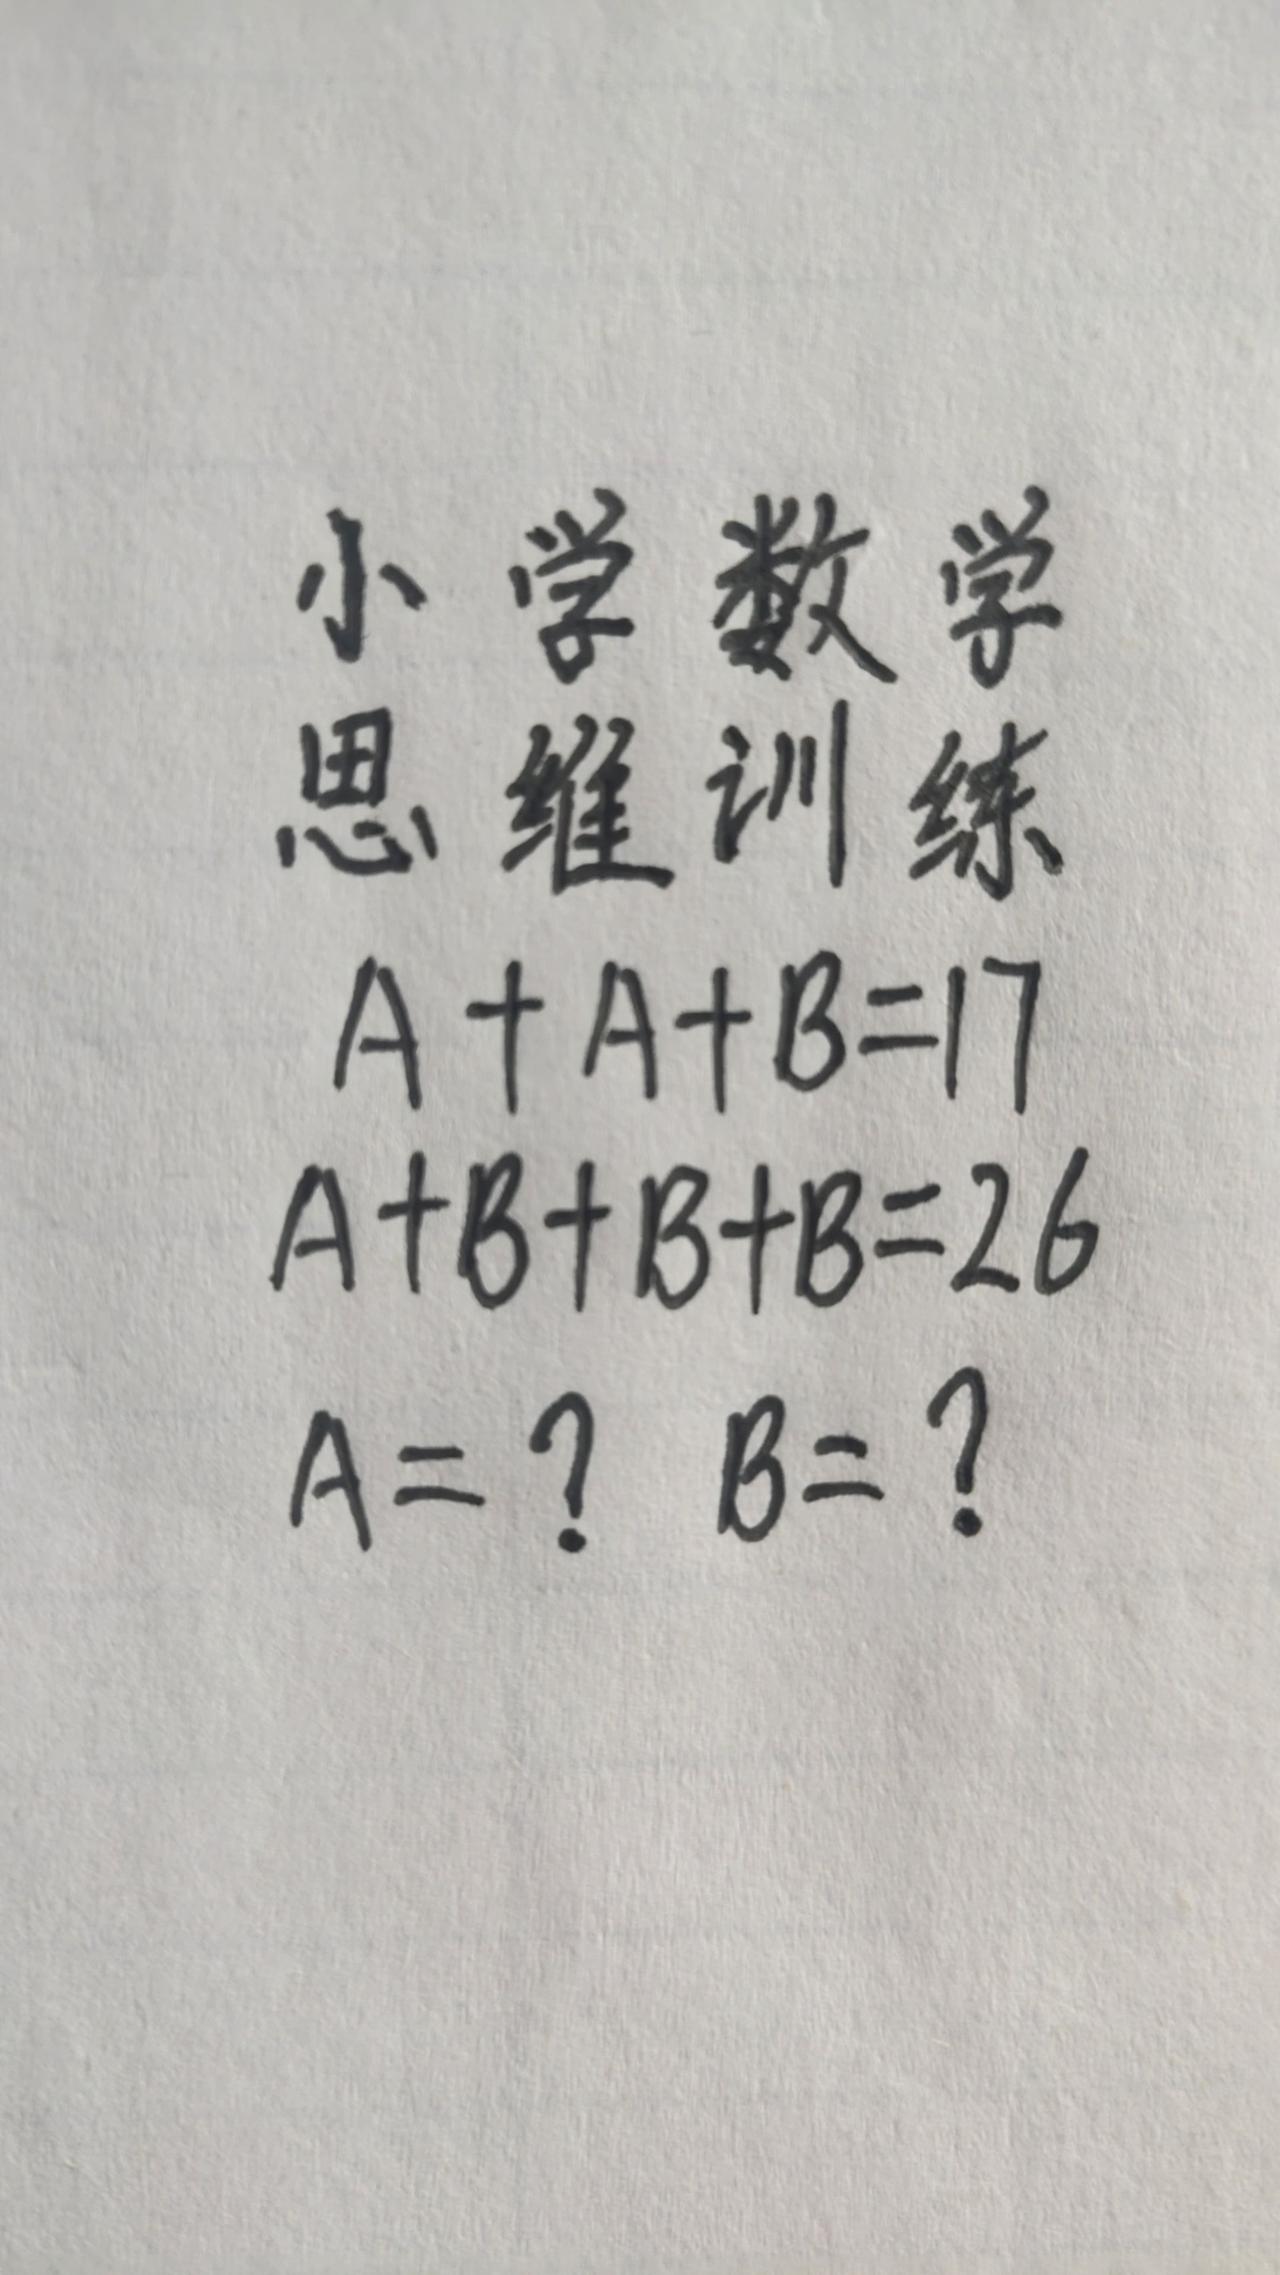 小学数学
思维训练
A+A+B=17
A+B+B+B=26
A=? B=?